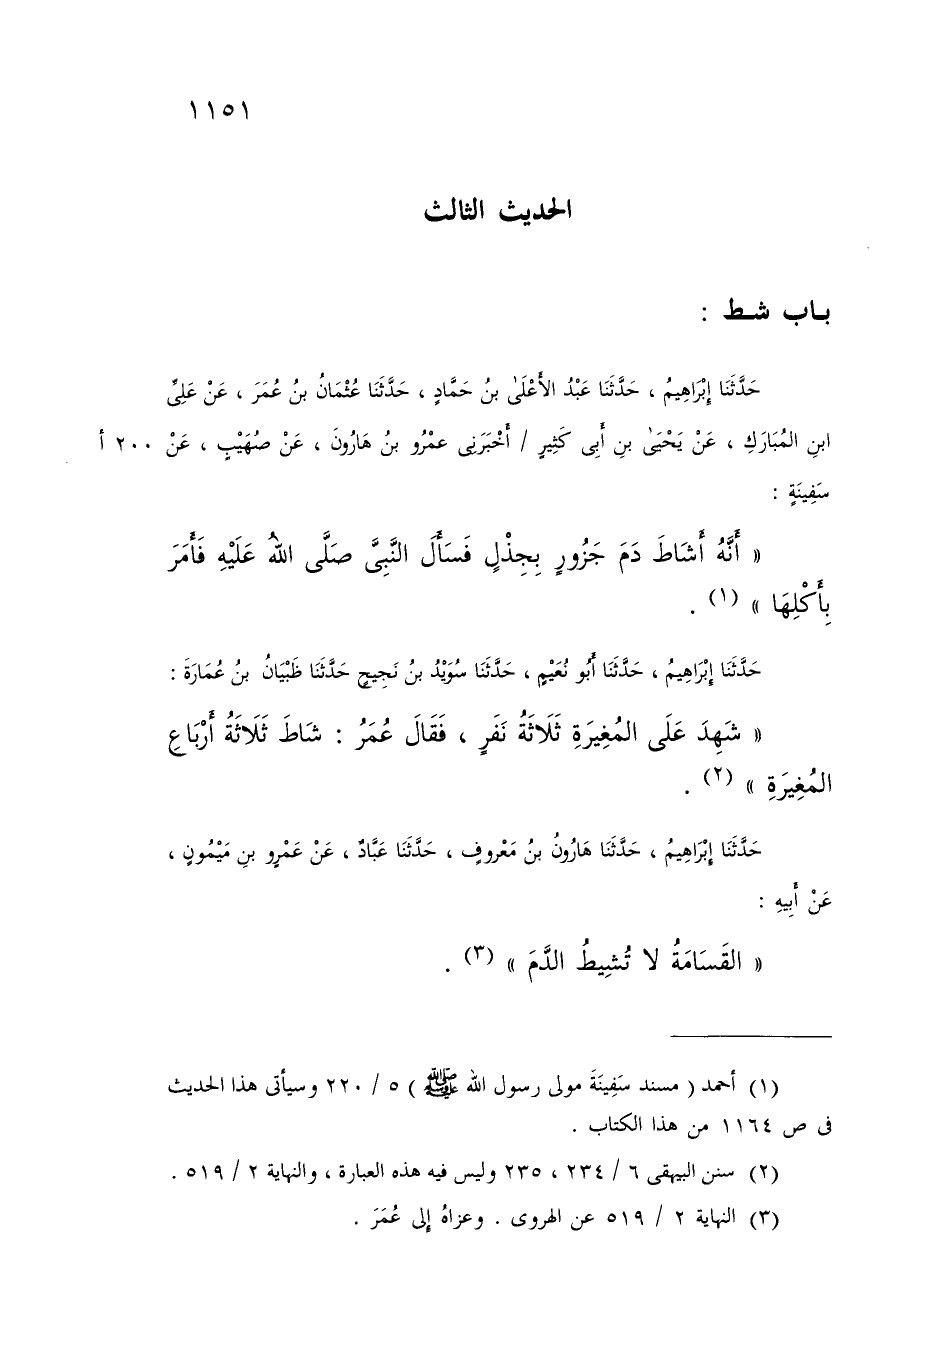 ١١٥١
الحديث الثالث
بـاب شـط :
حَدَّثَنَا إِبْرَاهِيمُ ، حَدَّثَنَا عَبْدُ الأَعْلَىٰ بنُ حَمَّادٍ ، حَدَّثَنَا عُثْمَانُ بنُ عُمَرَ ، عَنْ عَلِىِّ
ابنِ المُبَارَكِ ، عَنْ يَحْيَىٰ بنِ أَبِى كَثِيرٍ / أَخْبَرَنِى عمْرُو بنُ هَارُونَ ، عَنْ صُهَيْبٍ ، عَنْ ٢٠٠ أ
سَفِينَةٍ :
« أَنَّهُ أَشَاطَ دَمَ جَزُورٍ بِجِذْلٍ فَسَأَلَ النَّبِىَّ صَلَّى اللهُ عَلَيْهِ فَأَمَرَ
بِأَكْلِهَا » (١) .
حَدَّثَنَا إِبْرَاهِيمُ ، حَدَّثَنَا أَبُو نُعَيْمٍ ، حَدَّثَنَا سُوَيْدُ بنُ نَجِيحٍ حَدَّثَنَا ظَبْيَانُ بنُ عُمَارَةَ :
« شَهِدَ عَلَى المُغِيرَةِ ثَلَاثَةُ نَفَرٍ ، فَقَالَ عُمَرُ : شَاطَ ثَلَاثَةُ أَرْبَاعِ
المُغِيرَةِ » (٢) .
حَدَّثَنَا إِبْرَاهِيمُ ، حَدَّثَنَا هَارُونُ بنُ مَعْروفٍ ، حَدَّثَنَا عَبَّادٌ ، عَنْ عَمْرِو بنِ مَيْمُونٍ ،
عَنْ أَبِيهِ :
« القَسَامَةُ لا تُشِيطُ الدَّمَ » (٣) .
(١) أحمد ( مسند سَفِينَةَ مولى رسول الله ﷺ ) ٥ / ٢٢٠ وسيأتى هذا الحديث
فى ص ١١٦٤ من هذا الكتاب .
(٢) سنن البيهقى ٦ / ٢٣٤ ، ٢٣٥ وليس فيه هذه العبارة ، والنهاية ٢ / ٥١٩ .
(٣) النهاية ٢ / ٥١٩ عن الهروى . وعزاهُ إلى عُمَرَ .